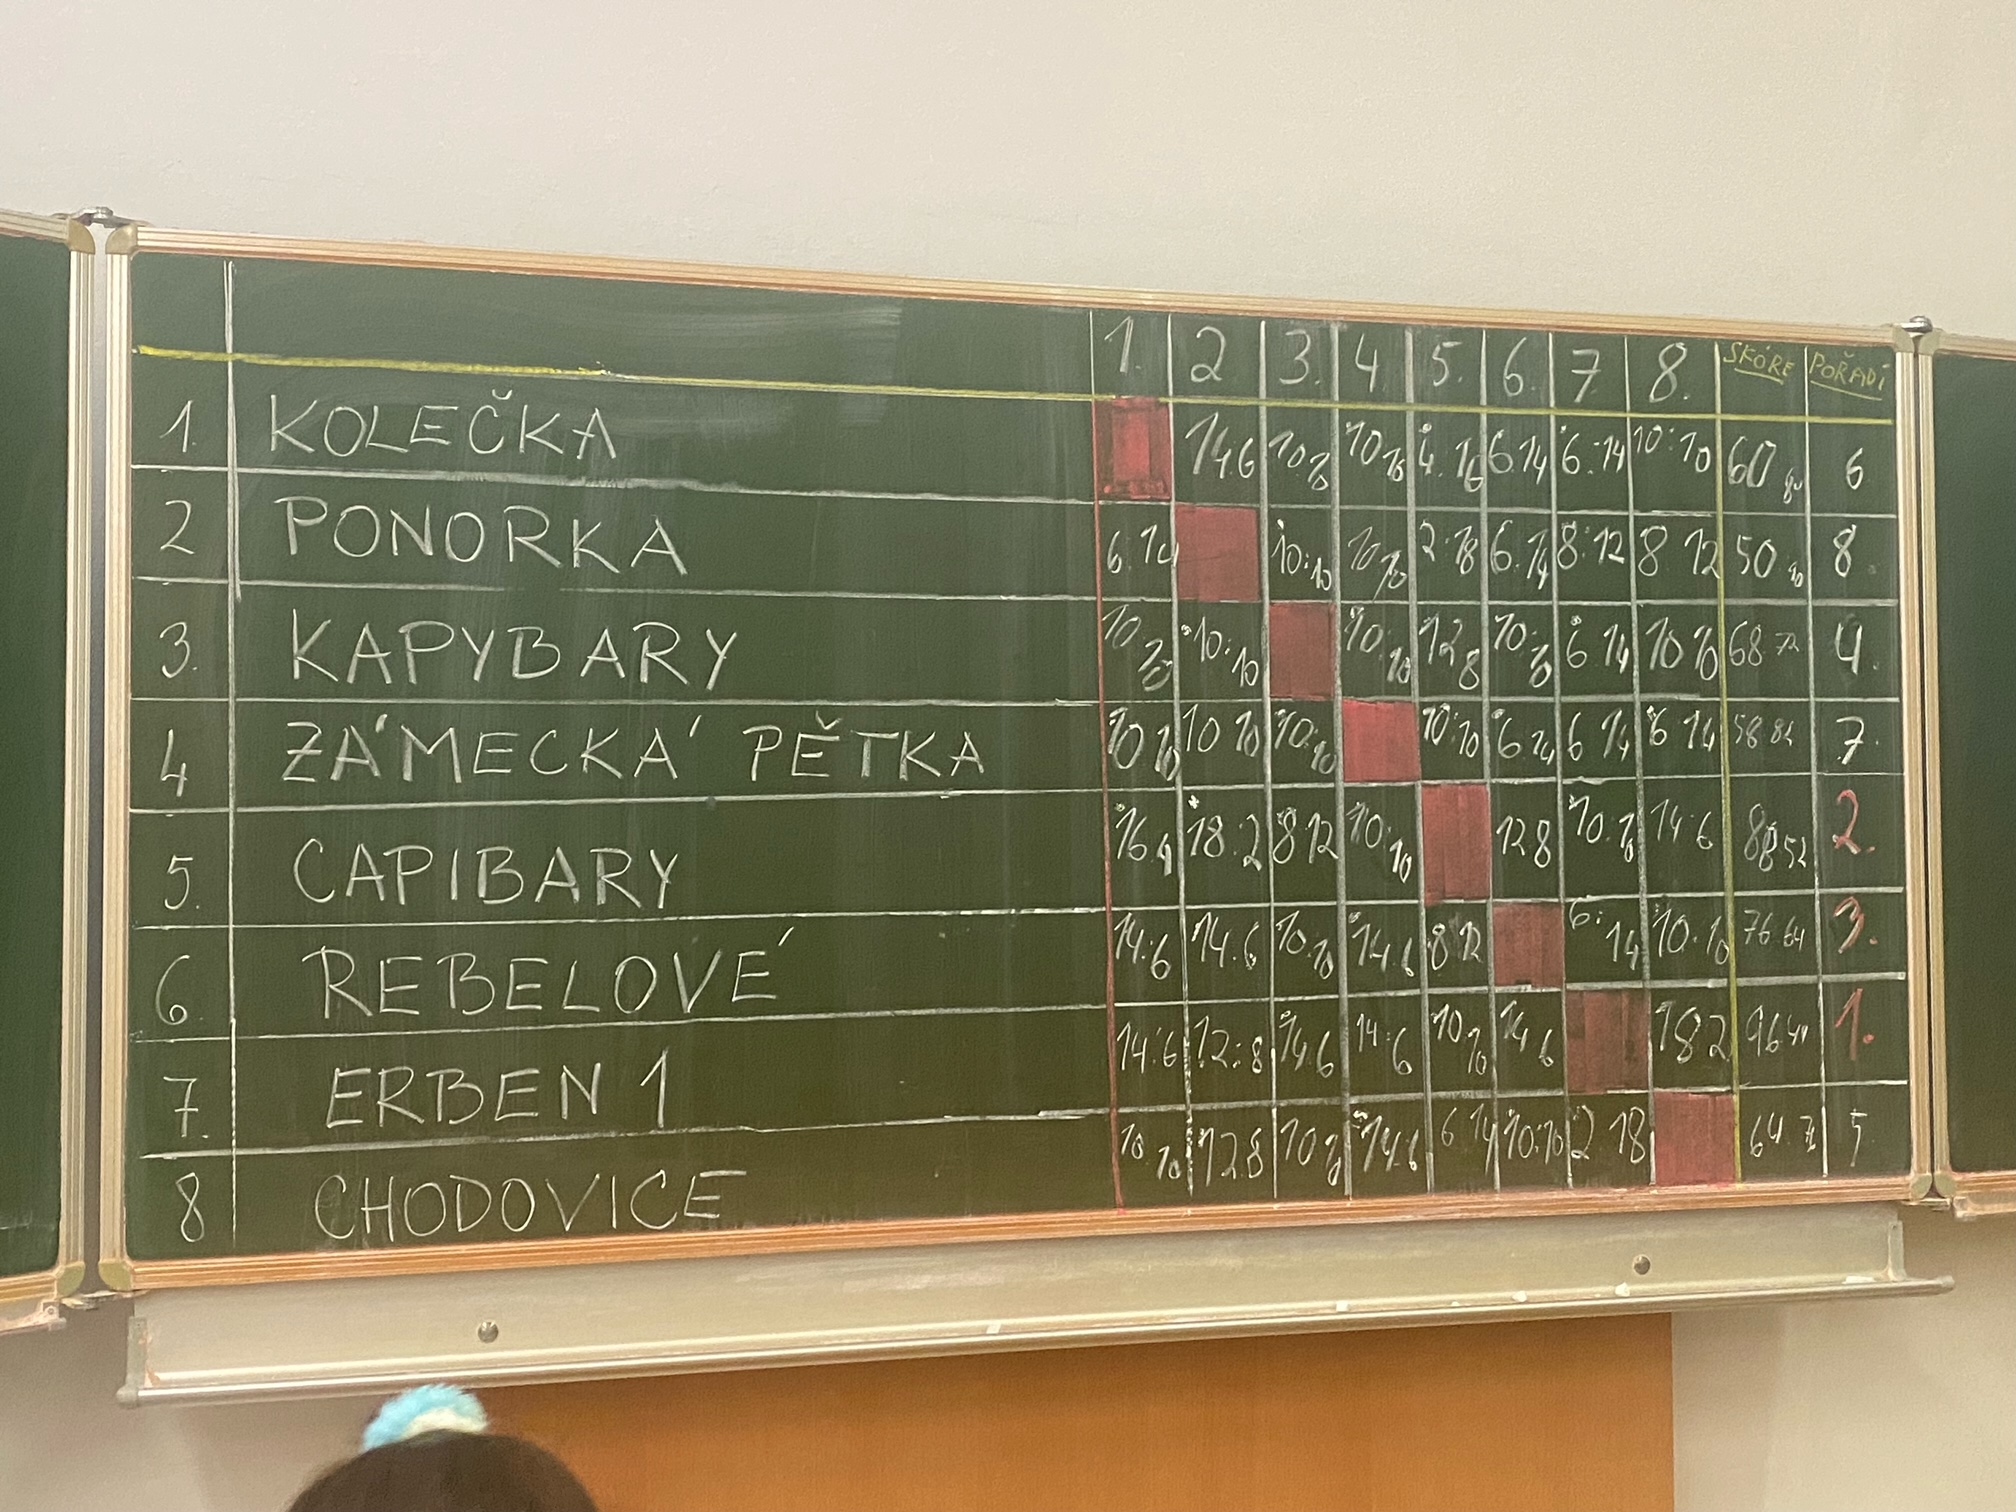 1. 2 3. 4 5. 6. 7 8. SKÓRE POŘADÍ
1. KOLEČKA 14:6 10:10 10:10 4:16 6:14 6:14 10:10 60:80 6
2 PONORKA 6:14 10:10 10:10 2:18 6:14 8:12 8 12 50:90 8.
3. KAPYBARY 10:10 10:10 10:10 12 8 10:10 6 14 10 10 68:72 4.
4 ZÁMECKÁ PĚTKA 10 10 10 10 10:10 10:10 6:14 6 14 6 14 58 82 7.
5. CAPIBARY 16:4 18:2 8 12 10:10 12 8 10:10 14:6 88 52 2.
6 REBELOVÉ 14:6 14:6 10:10 14:6 8 12 6:14 10:10 76:64 3.
7. ERBEN 1 14:6 12:8 14:6 14:6 10 10 14 6 18 2 96:44 1.
8 CHODOVICE 10:10 12:8 10 10 14:6 6 14 10:10 2 18 64 5